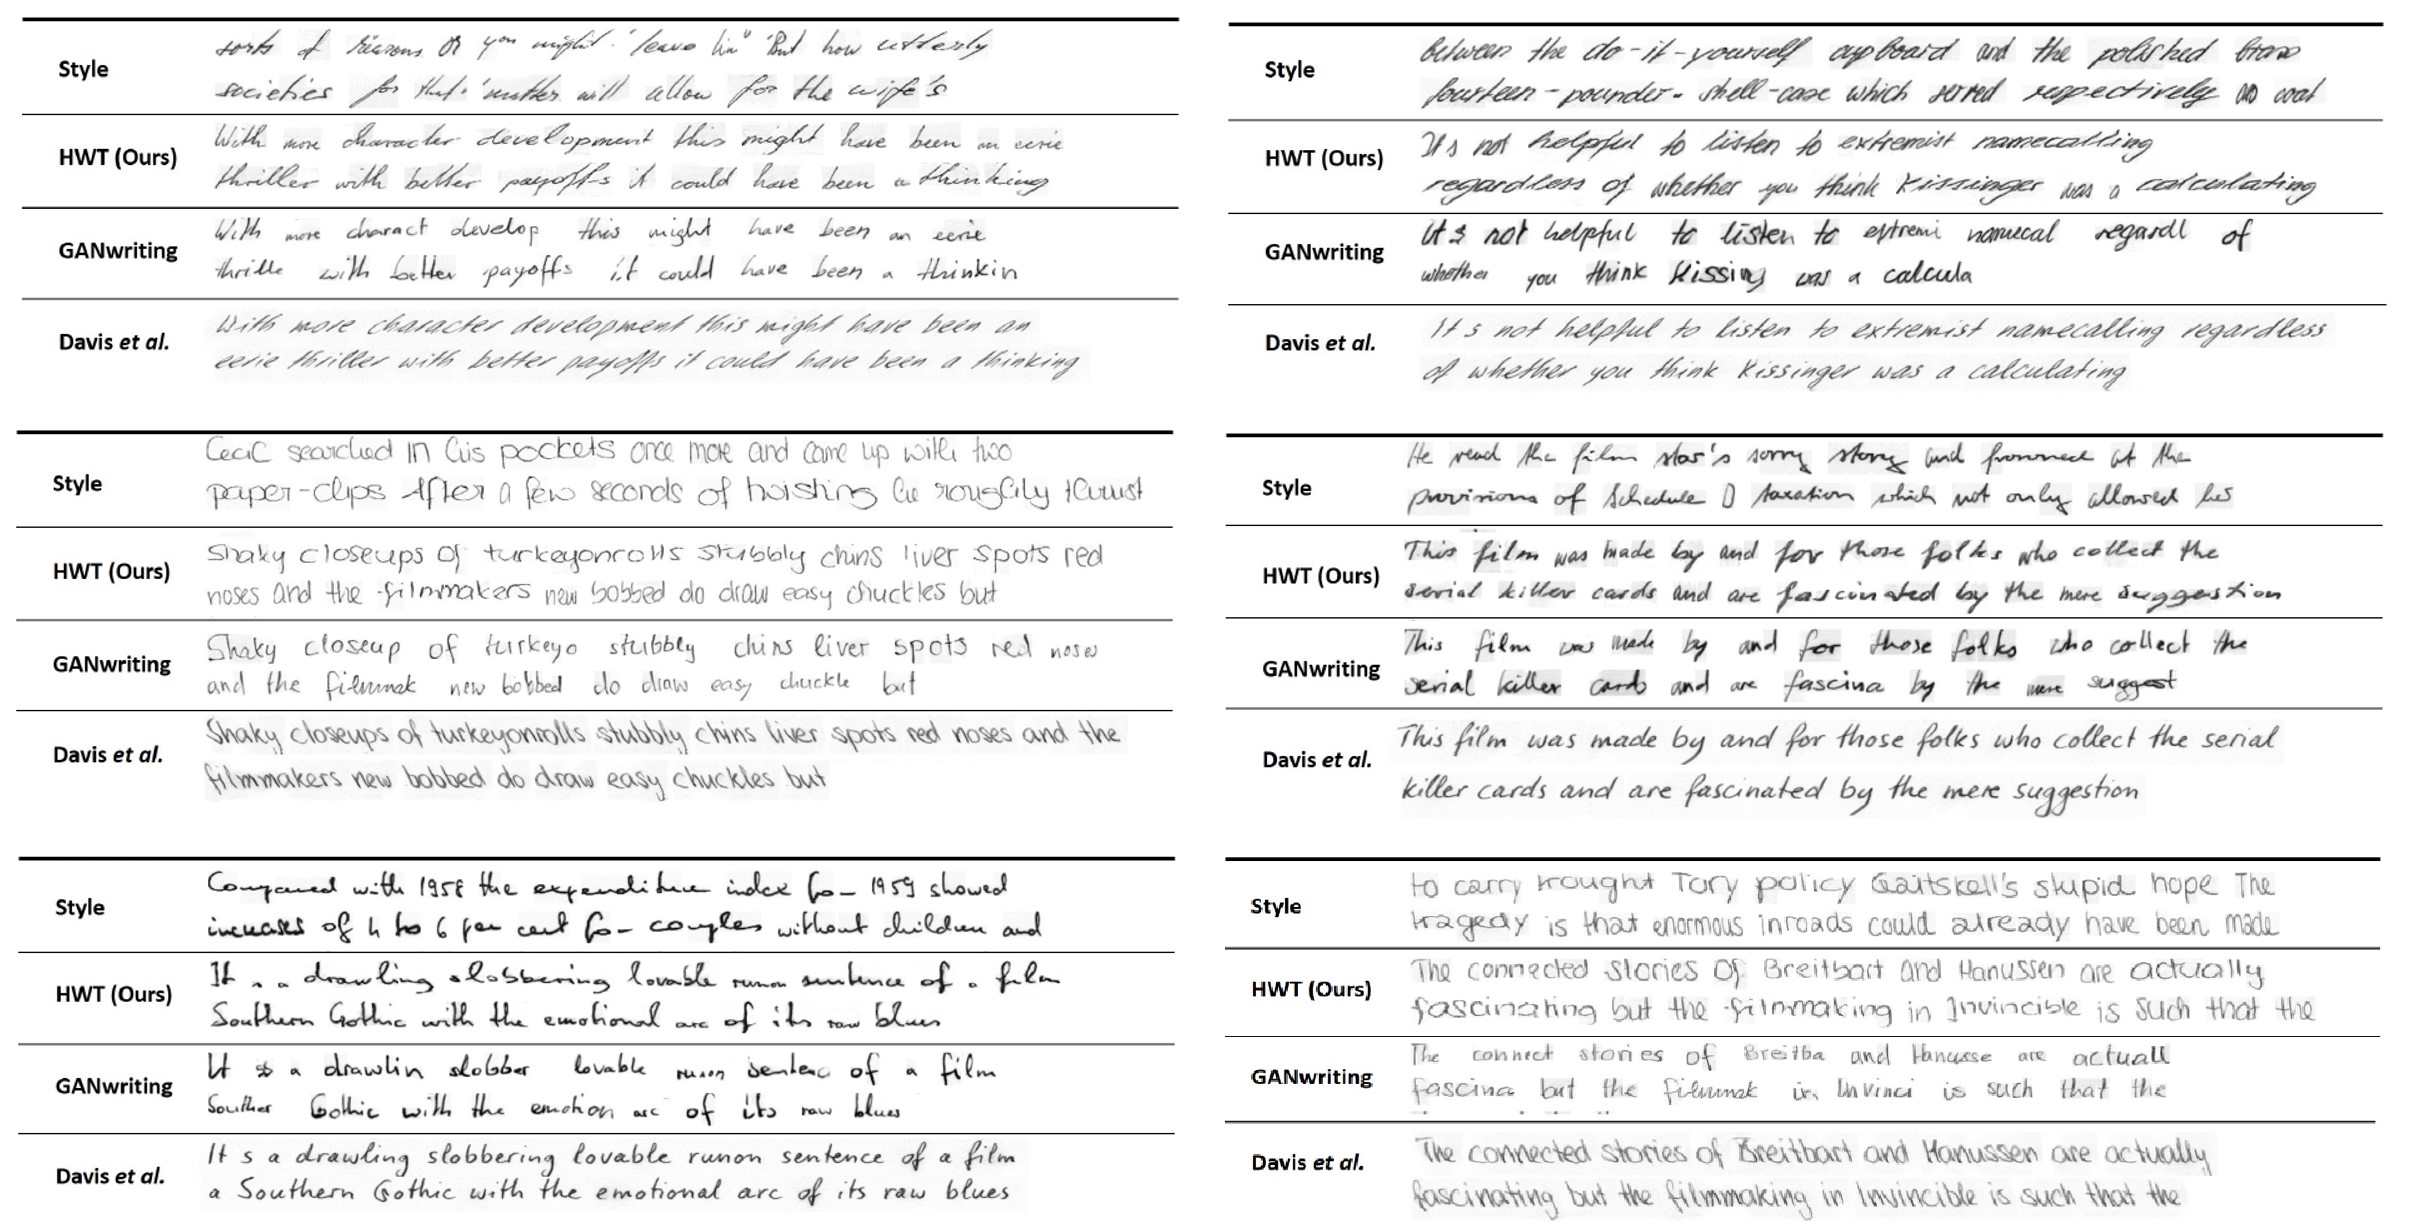 Style
sorts of reasons or you might 'leave him' But how utterly
societies for that 'matter will allow for the wife's
HWT (Ours)
With more character development this might have been an eerie
thriller with better payoffs it could have been a thinking
GANwriting
With more charact develop this might have been an eerie
thrille with better payoffs it could have been a thinkin
Davis et al.
With more character development this might have been an
eerie thriller with better payoffs it could have been a thinking
Style
between the do-it-yourself cupboard and the polished brass
fourteen-pounder- shell-case which served respectively as coat
HWT (Ours)
It s not helpful to listen to extremist namecalling
regardless of whether you think Kissinger was a calculating
GANwriting
It s not helpful to listen to extremi namecal regardl of
whether you think Kissing was a calcula
Davis et al.
It s not helpful to listen to extremist namecalling regardless
of whether you think Kissinger was a calculating
Style
Cecil searched in his pockets once more and came up with two
paper-clips After a few seconds of hoisting he roughly thrust
HWT (Ours)
Shaky closeups of turkeyonrolls stubbly chins liver spots red
noses and the filmmakers new bobbed do draw easy chuckles but
GANwriting
Shaky closeup of turkeyo stubbly chins liver spots red noses
and the filmmak new bobbed do draw easy chuckle but
Davis et al.
Shaky closeups of turkeyonrolls stubbly chins liver spots red noses and the
filmmakers new bobbed do draw easy chuckles but
Style
He read the film star's sorry story and frowned at the
provisions of Schedule D taxation which not only allowed his
HWT (Ours)
This film was made by and for those folks who collect the
serial killer cards and are fascinated by the mere suggestion
GANwriting
This film was made by and for those folks who collect the
serial killer cards and are fascina by the mere suggest
Davis et al.
This film was made by and for those folks who collect the serial
killer cards and are fascinated by the mere suggestion
Style
Compared with 1958 the expenditure index for 1959 showed
increases of 4 to 6 per cent for couples without children and
HWT (Ours)
It s a drawling slobbering lovable runon sentence of a film
Southern Gothic with the emotional arc of its raw blues
GANwriting
It s a drawlin slobber lovable runon sentenc of a film
Souther Gothic with the emotion arc of its raw blues
Davis et al.
It s a drawling slobbering lovable runon sentence of a film
a Southern Gothic with the emotional arc of its raw blues
Style
to carry trought Tory policy Gaitskell's stupid hope The
tragedy is that enormous inroads could already have been made
HWT (Ours)
The connected stories Of Breitbart and Hanussen are actually
fascinating but the filmmaking in Invincible is such that the
GANwriting
The connect stories of Breitba and Hanusse are actuall
fascina but the filmmak in Invinci is such that the
Davis et al.
The connected stories of Breitbart and Hanussen are actually
fascinating but the filmmaking in Invincible is such that the